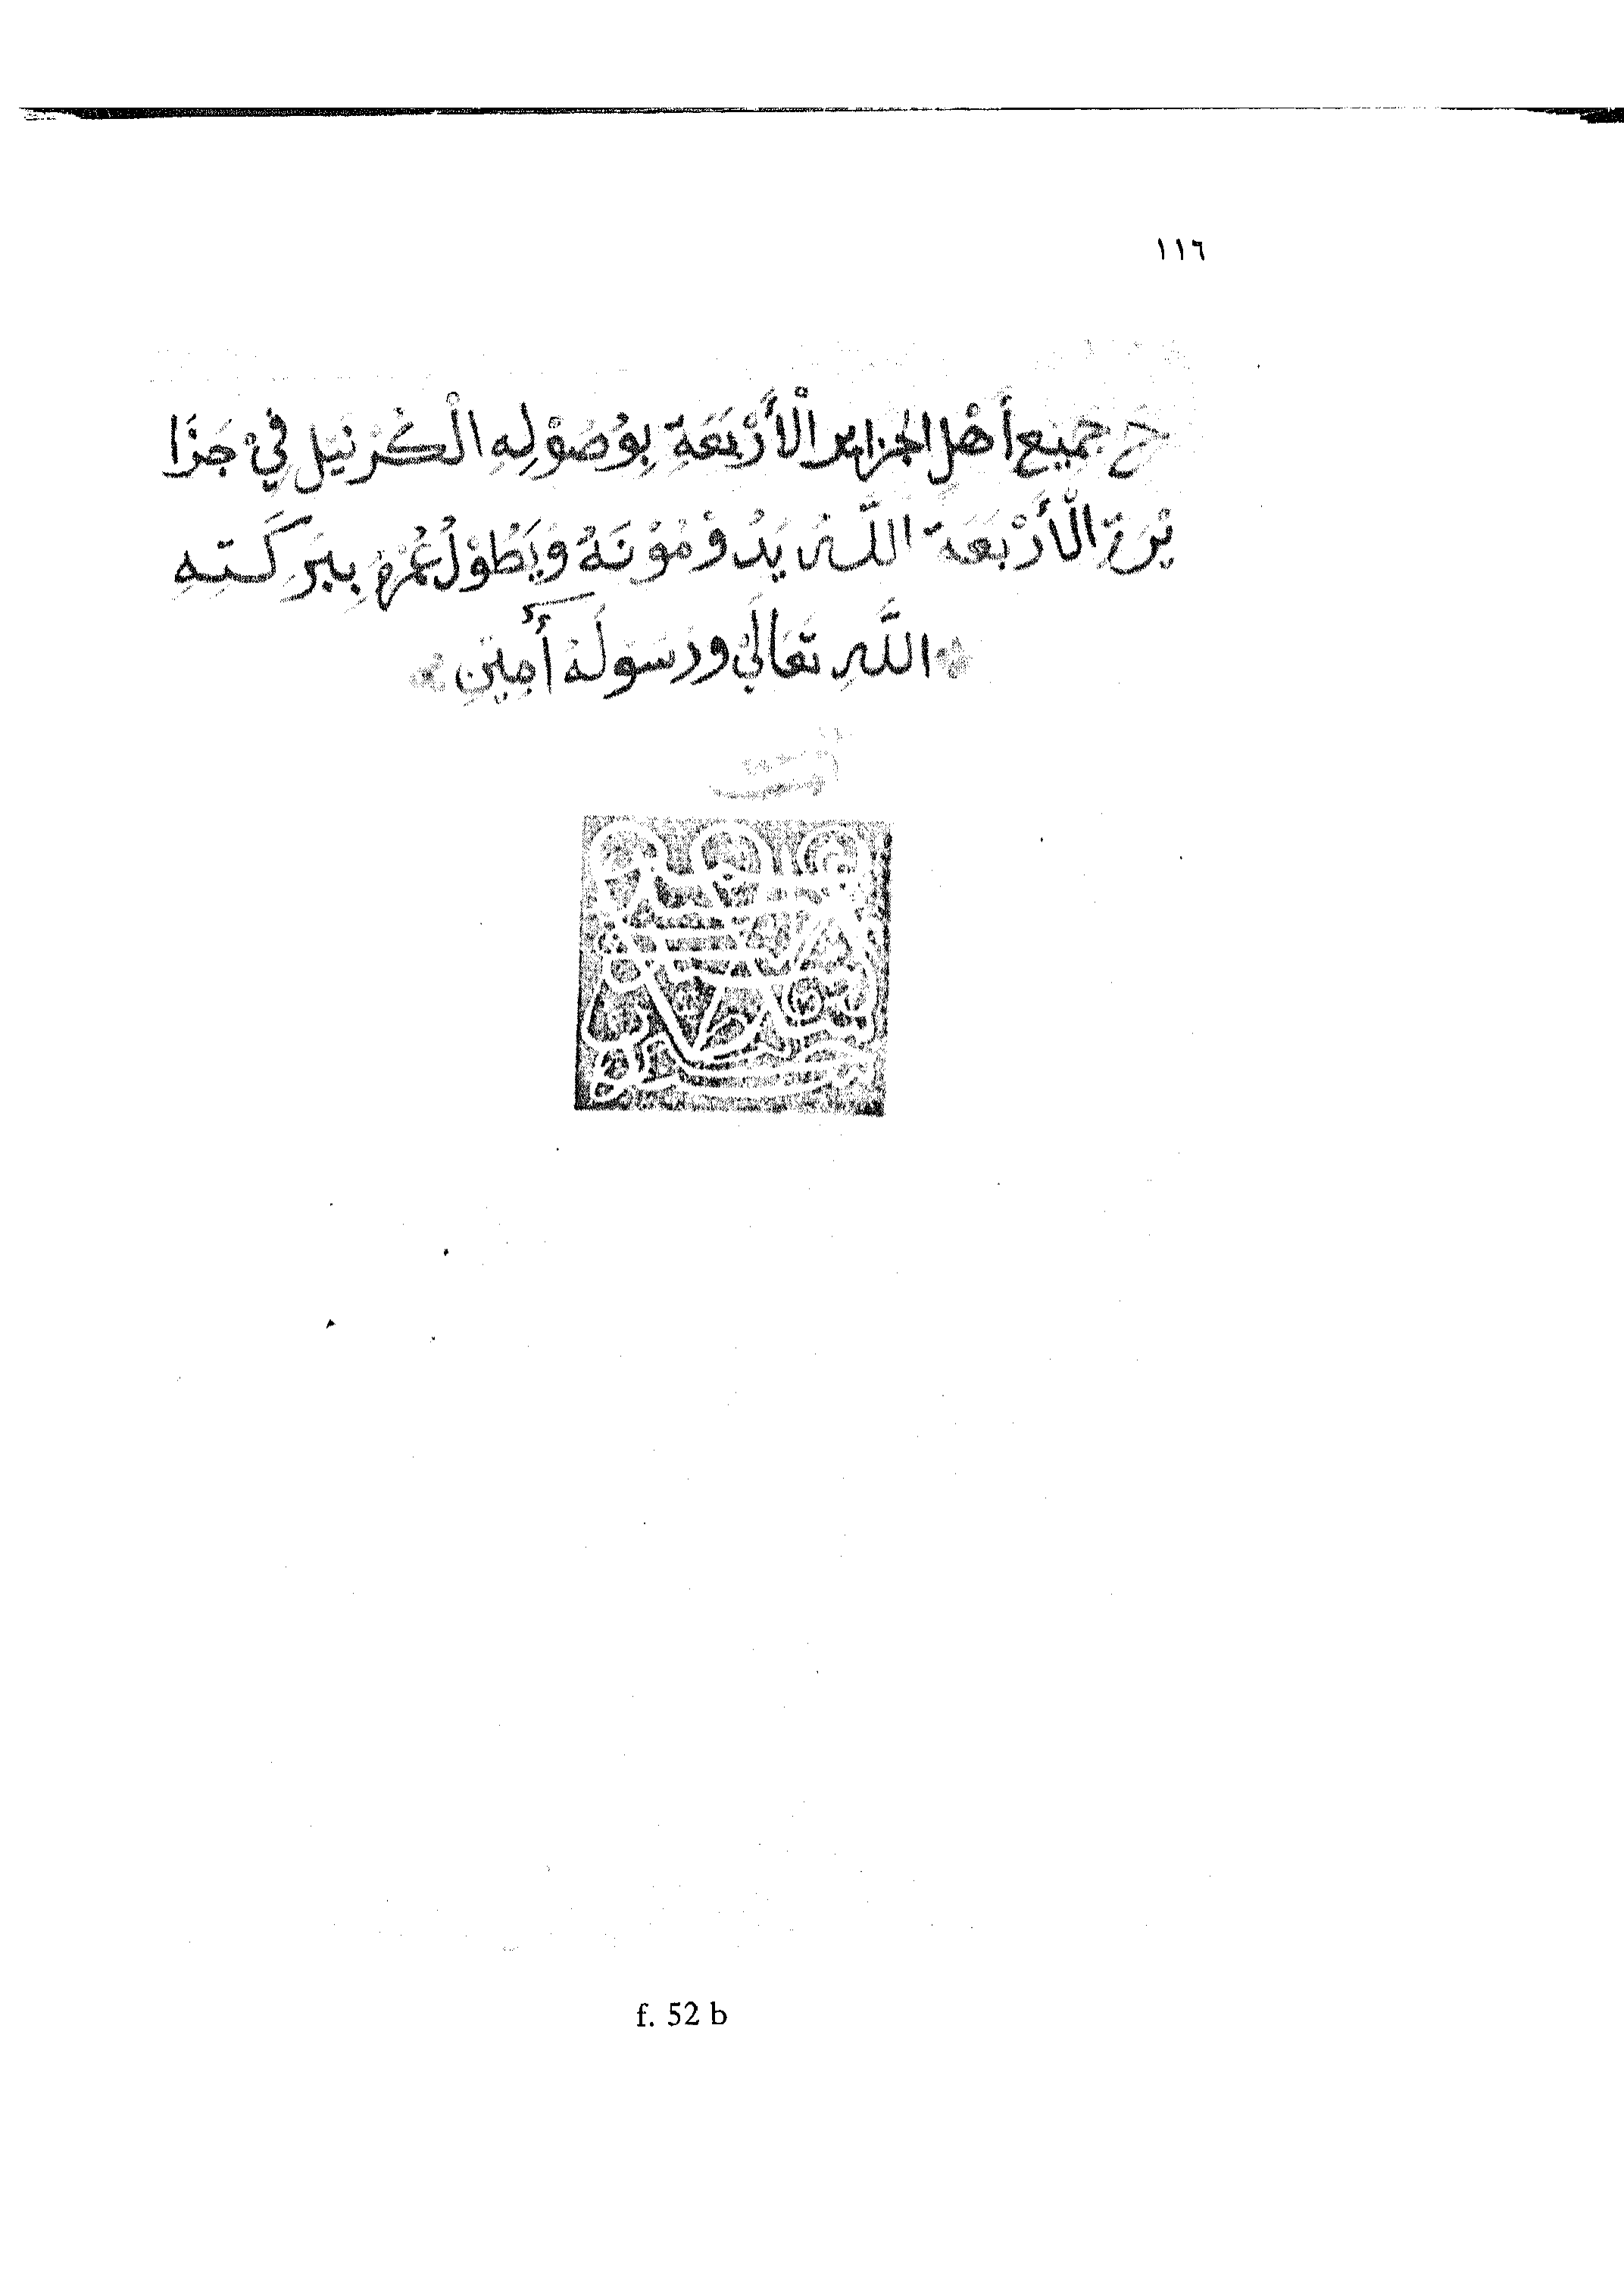 ١١٦
ح جَمِيْع أَهْلِ الجزاير الْأَرْبَعَةِ بِوُصُوْلِهِ الْكُرْنَيْل فِيْ جَزَا
يْرَةِ الْأَرْبَعَة اللّهُ يَدُوْمُوْنَهُ وَيَطُوْلُ عُمْرَهُ بِبَرَكَتِهِ
اللَّهِ تَعَالَيْ ورَسَوْلَهُ أَمِيْنِ
f. 52 b